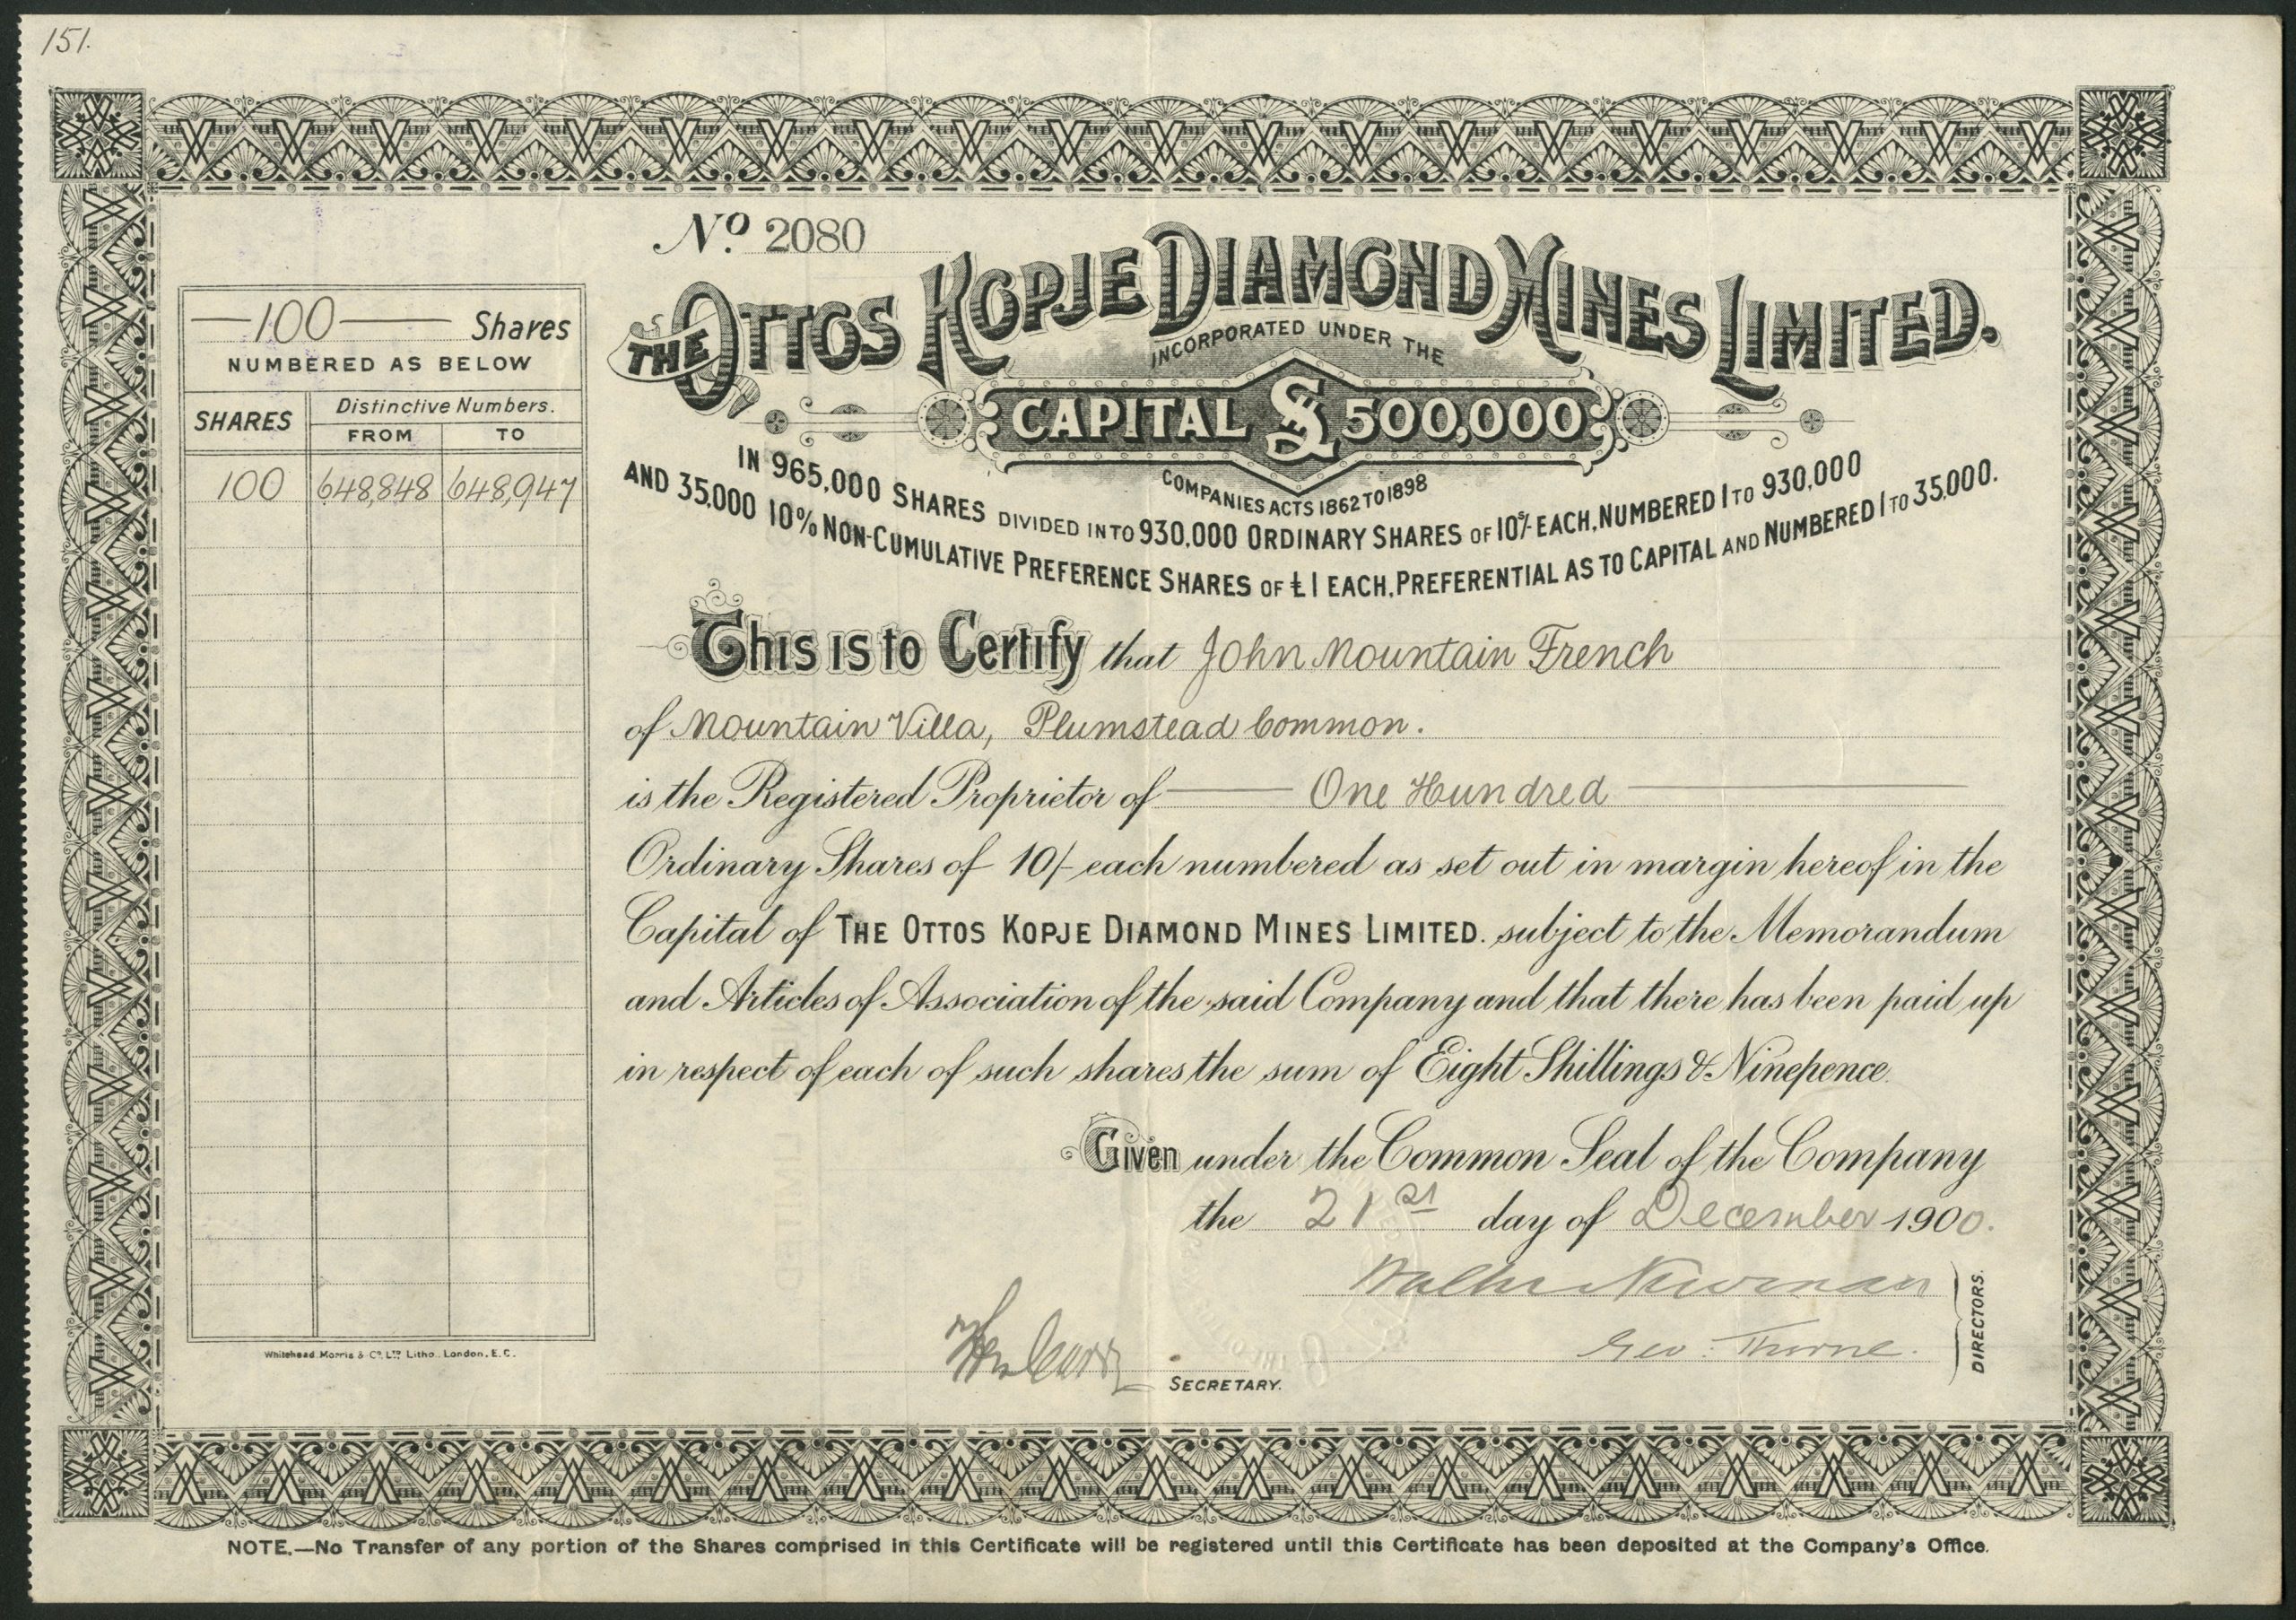 151.
Nº 2080
THE OTTOS KOPJE DIAMOND MINES LIMITED.
INCORPORATED UNDER THE
CAPITAL £500,000
COMPANIES ACTS 1862 TO 1898
IN 965,000 SHARES DIVIDED INTO 930,000 ORDINARY SHARES OF 10S/- EACH, NUMBERED 1 TO 930,000
AND 35,000 10% NON-CUMULATIVE PREFERENCE SHARES OF £1 EACH, PREFERENTIAL AS TO CAPITAL AND NUMBERED 1 TO 35,000.
100 Shares
NUMBERED AS BELOW
SHARES Distinctive Numbers.
FROM TO
100 648,848 648,947
This is to Certify that John Mountain French
of Mountain Villa, Plumstead Common.
is the Registered Proprietor of One Hundred
Ordinary Shares of 10/- each numbered as set out in margin hereof in the
Capital of THE OTTOS KOPJE DIAMOND MINES LIMITED. subject to the Memorandum
and Articles of Association of the said Company and that there has been paid up
in respect of each of such shares the sum of Eight Shillings & Ninepence.
Given under the Common Seal of the Company
the 21st day of December 1900.
Walter Newman
Geo. Thorne.
DIRECTORS.
SECRETARY.
Whitehead, Morris & Co. Ltd. Litho., London, E.C.
NOTE.—No Transfer of any portion of the Shares comprised in this Certificate will be registered until this Certificate has been deposited at the Company's Office.